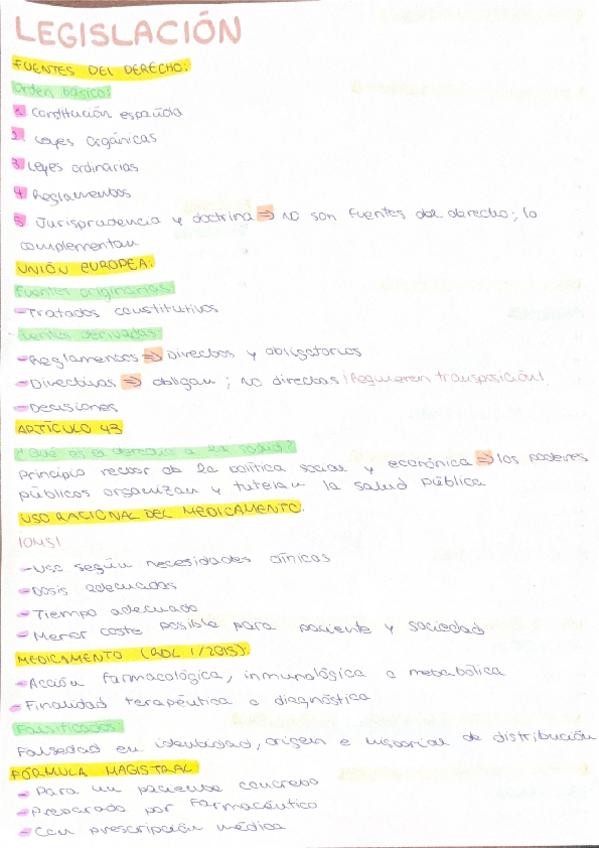 LEGISLACIÓN
FUENTES DEL DERECHO:
Orden básico:
1. Constitución española
2. Leyes Orgánicas
3. Leyes ordinarias
4. Reglamentos
5. Jurisprudencia y doctrina => NO son fuentes del derecho; lo
complementan
UNIÓN EUROPEA:
Fuentes originarias
- Tratados constitutivos
Fuentes derivadas:
- Reglamentos => Directos y obligatorios
- Directivas => obligan; NO directas (Requieren transposición)
- Decisiones
ARTÍCULO 43
¿Qué es el derecho a la salud?
Principio rector de la política social y económica => los poderes
públicos organizan y tutelan la salud pública
USO RACIONAL DEL MEDICAMENTO.
(OMS)
- Uso según necesidades clínicas
- Dosis adecuadas
- Tiempo adecuado
- Menor coste posible para paciente y sociedad
MEDICAMENTO (RDL 1/2015):
- Acción farmacológica, inmunológica o metabólica
- Finalidad terapéutica o diagnóstica
Falsificados:
Falsedad en identidad, origen e historial de distribución
FÓRMULA MAGISTRAL
- Para un paciente concreto
- Preparado por Farmacéutico
- Con prescripción médica